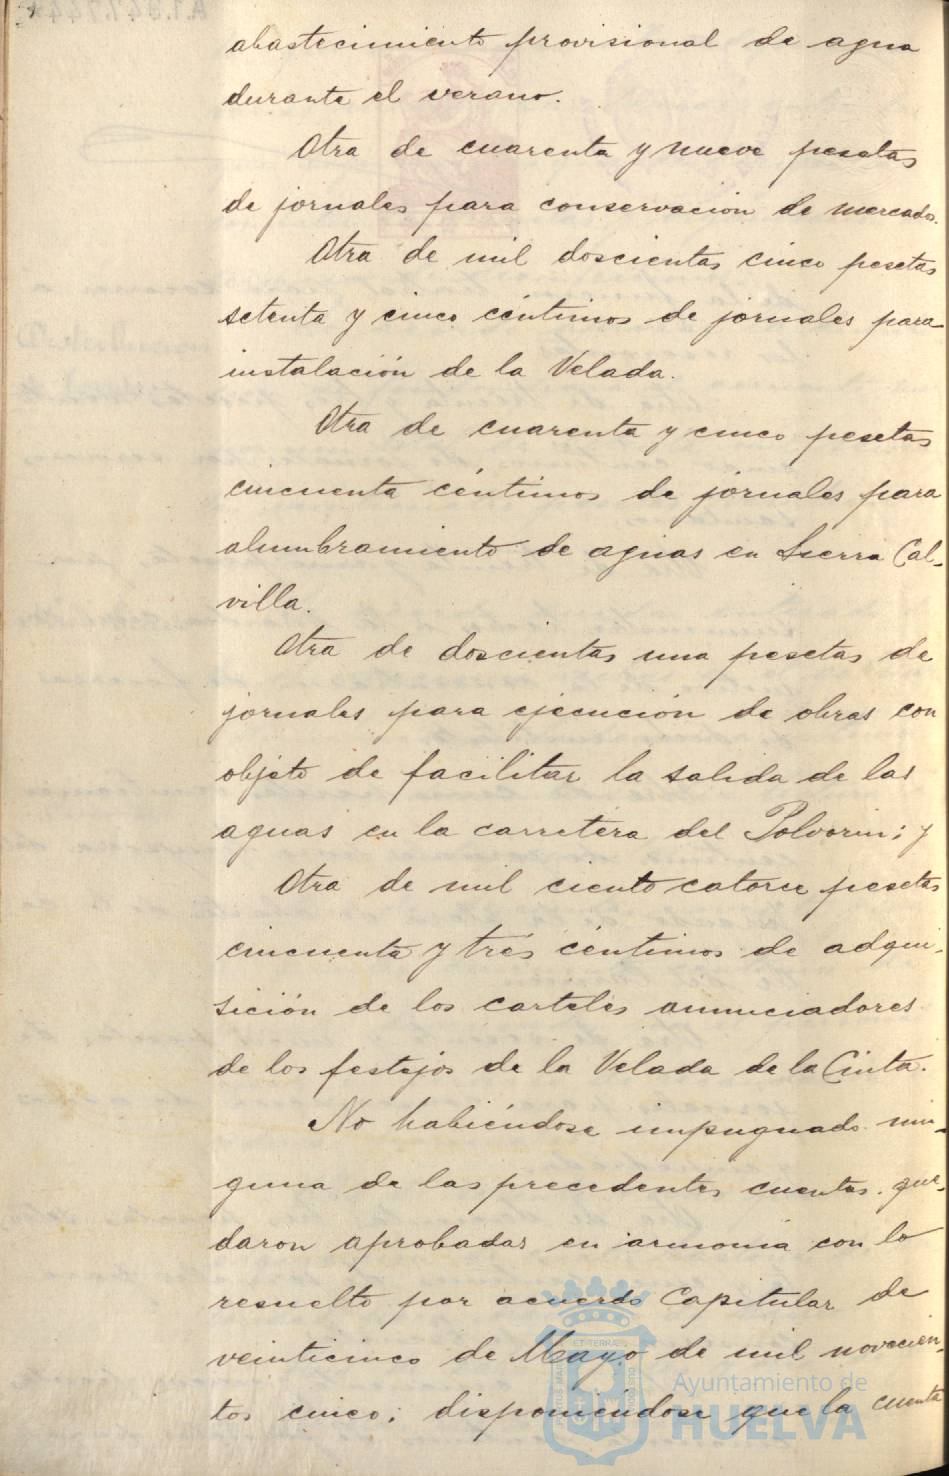 abastecimiento provisional de agua
durante el verano.
Otra de cuarenta y nueve pesetas
de jornales para conservación de mercados.
Otra de mil doscientas cinco pesetas
setenta y cinco céntimos de jornales para
instalación de la Velada.
Otra de cuarenta y cinco pesetas
cincuenta céntimos de jornales para
alumbramiento de aguas en Sierra Cal-
villa.
Otra de doscientas una pesetas de
jornales para ejecución de obras con
objeto de facilitar la salida de las
aguas en la carretera del Polvorin; y
Otra de mil ciento catorce pesetas
cincuenta y tres céntimos de adqui-
sición de los carteles anunciadores
de los festejos de la Velada de la Cinta.
No habiéndose impugnado nin-
guna de las precedentes cuentas, que-
daron aprobadas en armonía con lo
resuelto por acuerdo Capitular de
veinticinco de Mayo de mil novecien-
tos cinco; disponiéndose que la cuenta
Ayuntamiento de
HUELVA